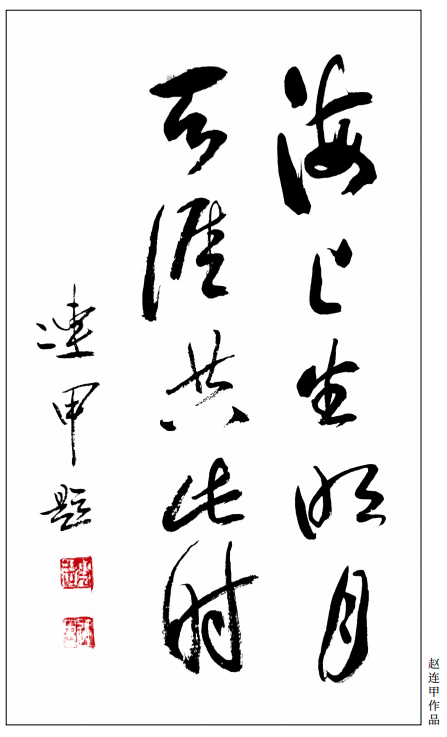 海上生明月
天涯共此时
连甲题
赵连甲作品